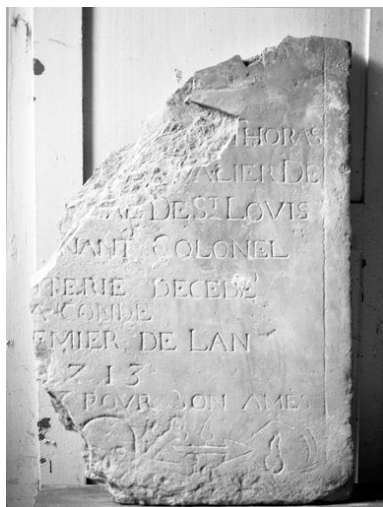 THORAS
VALIER DE
DE ST LOVIS
NANT COLONEL
TERIE DECEDE
CONDE
EMIER DE LAN
713
POVR SON AMES